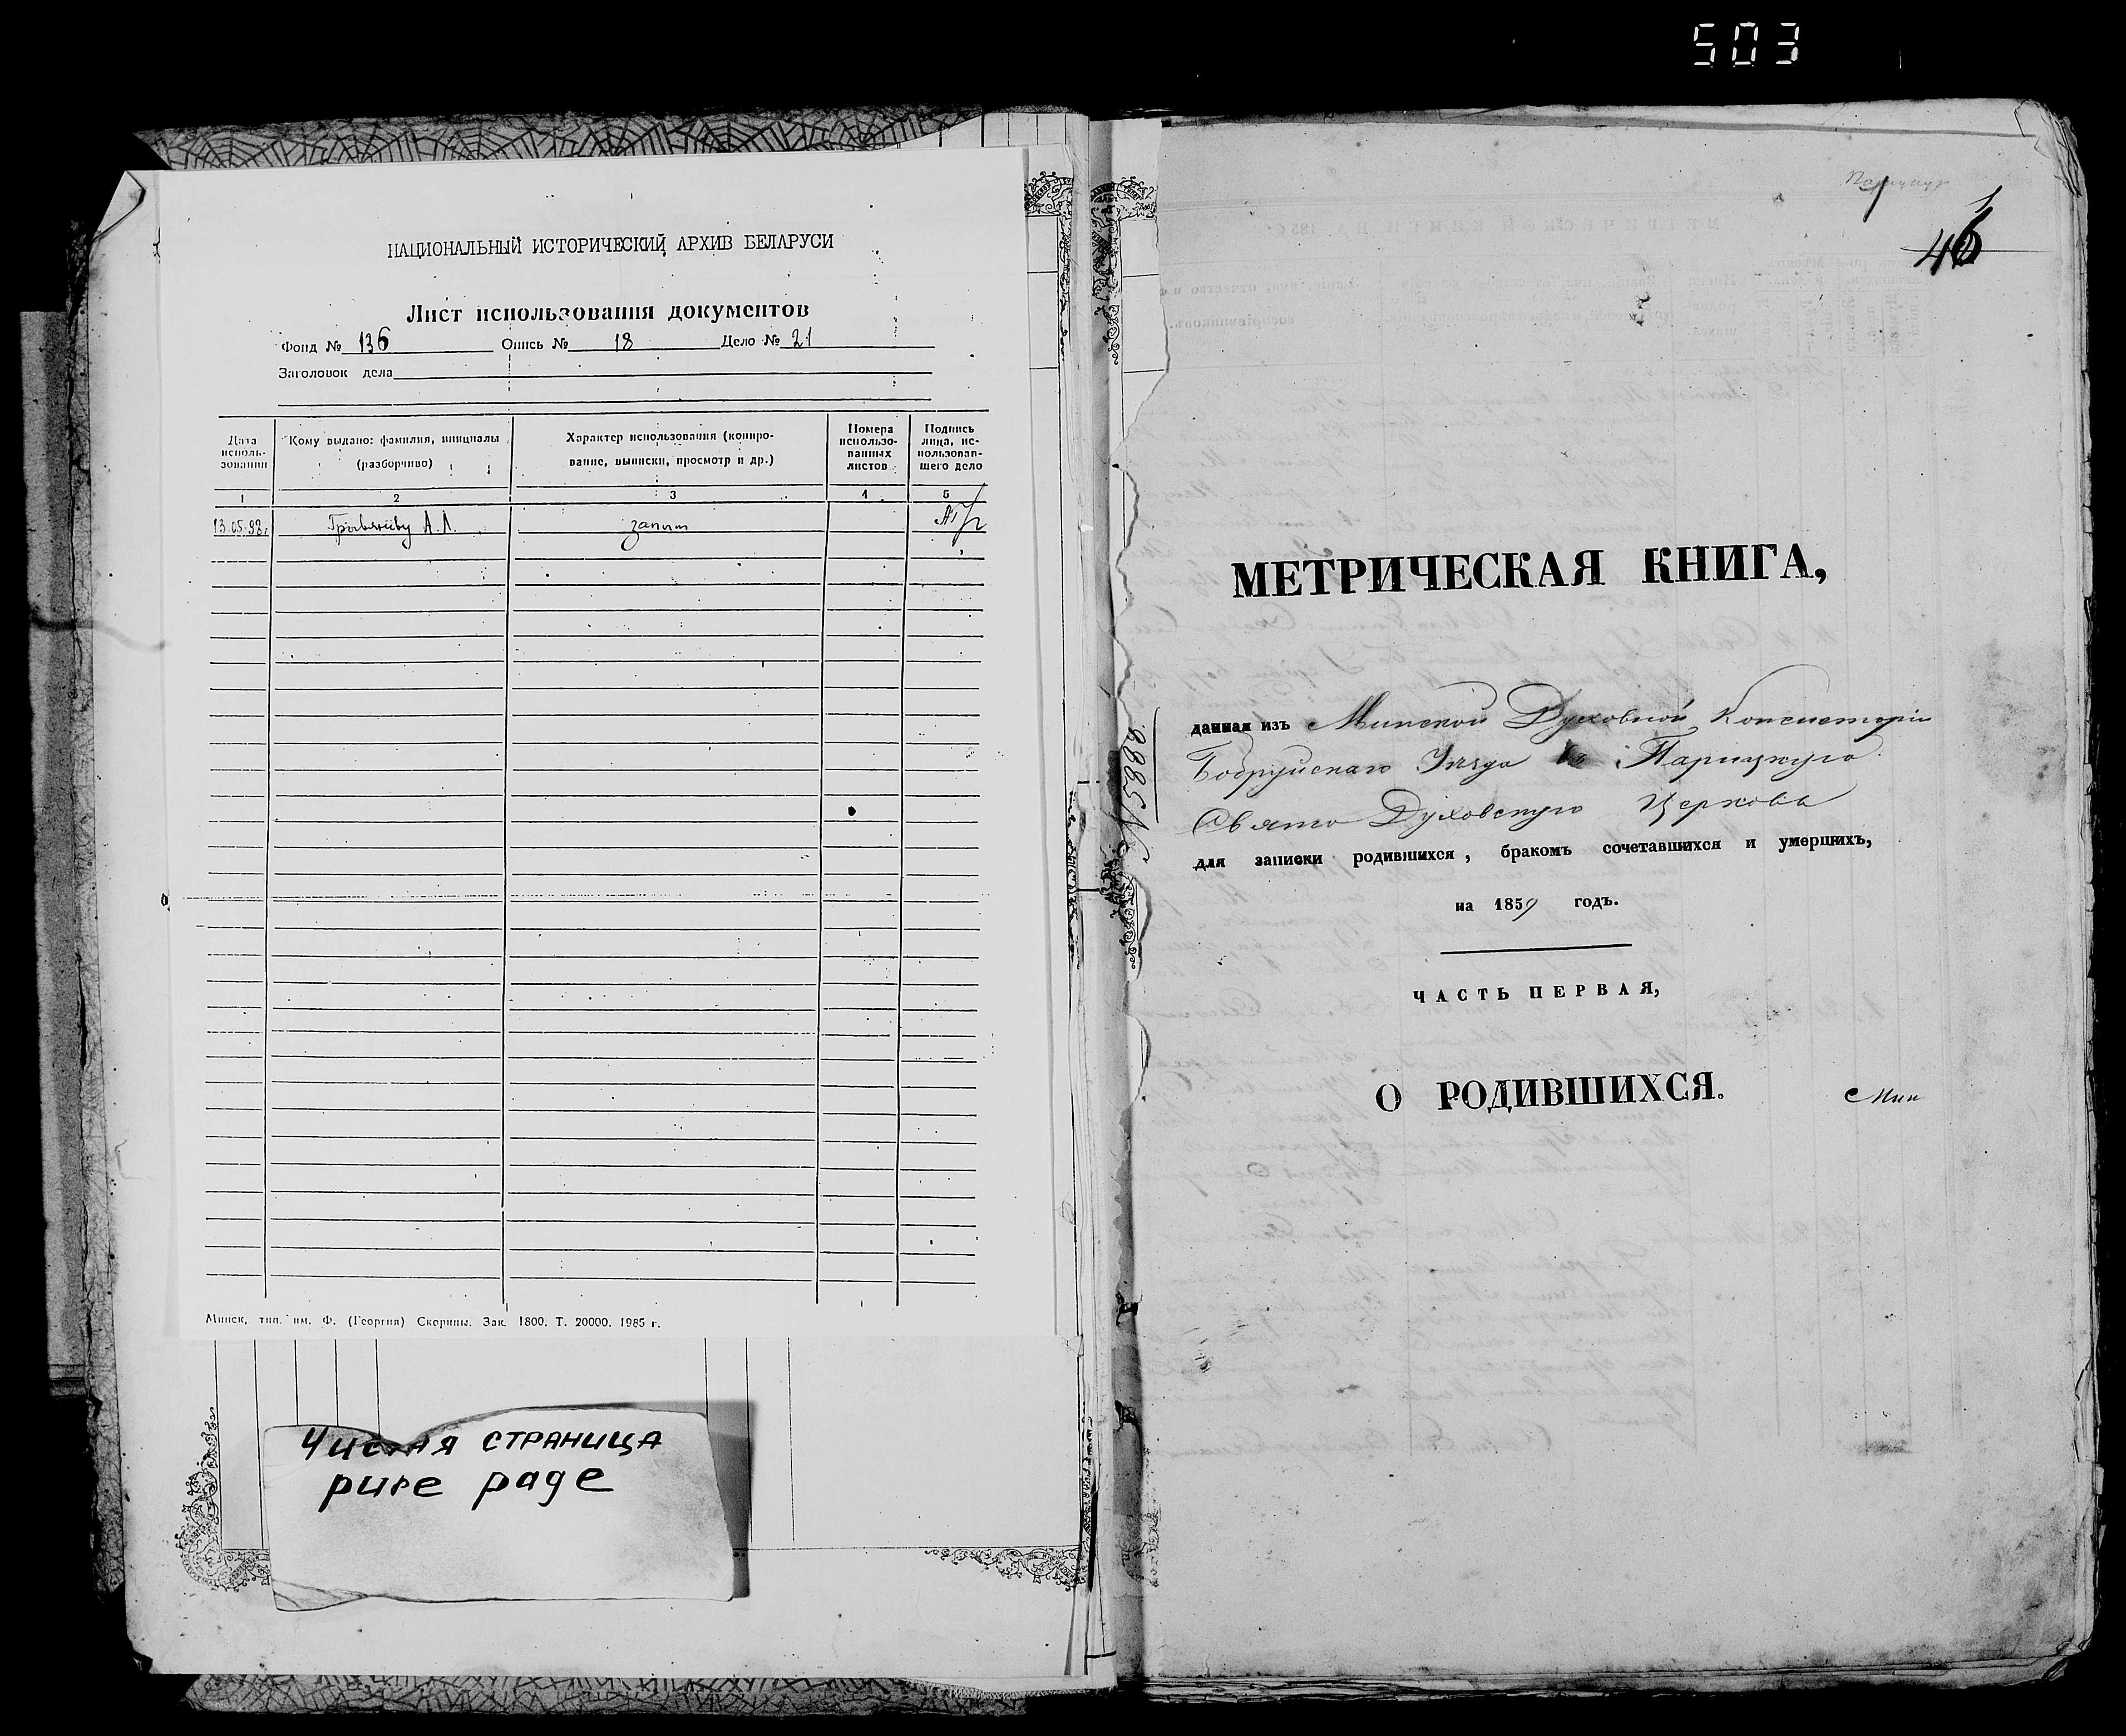 503
НАЦИОНАЛЬНЫЙ ИСТОРИЧЕСКИЙ АРХИВ БЕЛАРУСИ
Лист использования документов
Фонд № 136 Опись № 18 Дело № 21
Заголовок дела
Дата использования
Кому выдано: фамилия, инициалы (разборчиво)
Характер использования (копирование, выписки, просмотр и др.)
Номера использованных листов
Подпись лица, использовавшего дело
1 2 3 4 5
13.05.98г. А.Л. запит
Минск, тип. им. Ф. (Георгия) Скорины. Зак. 1800. Т. 20000. 1985 г.
Чистая страница
pure page
46
МЕТРИЧЕСКАЯ КНИГА,
данная изъ Минской Духовной Консисторіи
Бобруйскаго Уезда въ Парицкую
Свято Духовскую Церковь
для записки родившихся, бракомъ сочетавшихся и умершихъ,
на 1859 годъ.
ЧАСТЬ ПЕРВАЯ,
О РОДИВШИХСЯ.
Мин
№ 5882.